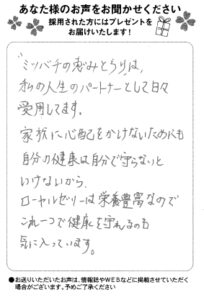 あなた様のお声をお聞かせください
採用された方にはプレゼントを
お届けいたします!
"ミツバチの恵みとろり"は、
私の人生のパートナーとして日々
愛用してます。
家族に心配をかけないためにも
自分の健康は自分で守らないと
いけないから、
ローヤルゼリーは栄養豊富なので
これ一つで健康を守れるのも
気に入っています。
●お送りいただいたお声は、情報誌やWEBなどに掲載させていただく
場合がございます。予めご了承ください